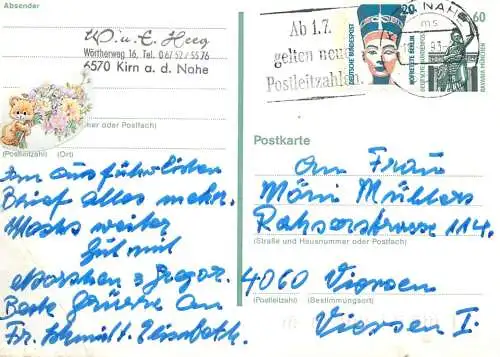 Absender
W. u. E. Heeg
Wörtherweg 16, Tel. 06752/5576
6570 Kirn a. d. Nahe
mer oder Postfach)
(Postleitzahl) (Ort)
Im ausführlichen
Brief alles mehr.
weiter
gut mit
Gregor.
Beste Grüsse an
Fr. Schmidt. Elisabeth.
Ab 1.7.
gelten neue
Postleitzahlen
NAHE
20
DEUTSCHE BUNDESPOST
NOFRETETE BERLIN
DEUTSCHE BUNDESPOST
BAVARIA MÜNCHEN
60
Postkarte
An Frau
Müllers
114.
(Straße und Hausnummer oder Postfach)
4060 Viersen
(Postleitzahl) (Bestimmungsort)
Viersen I.